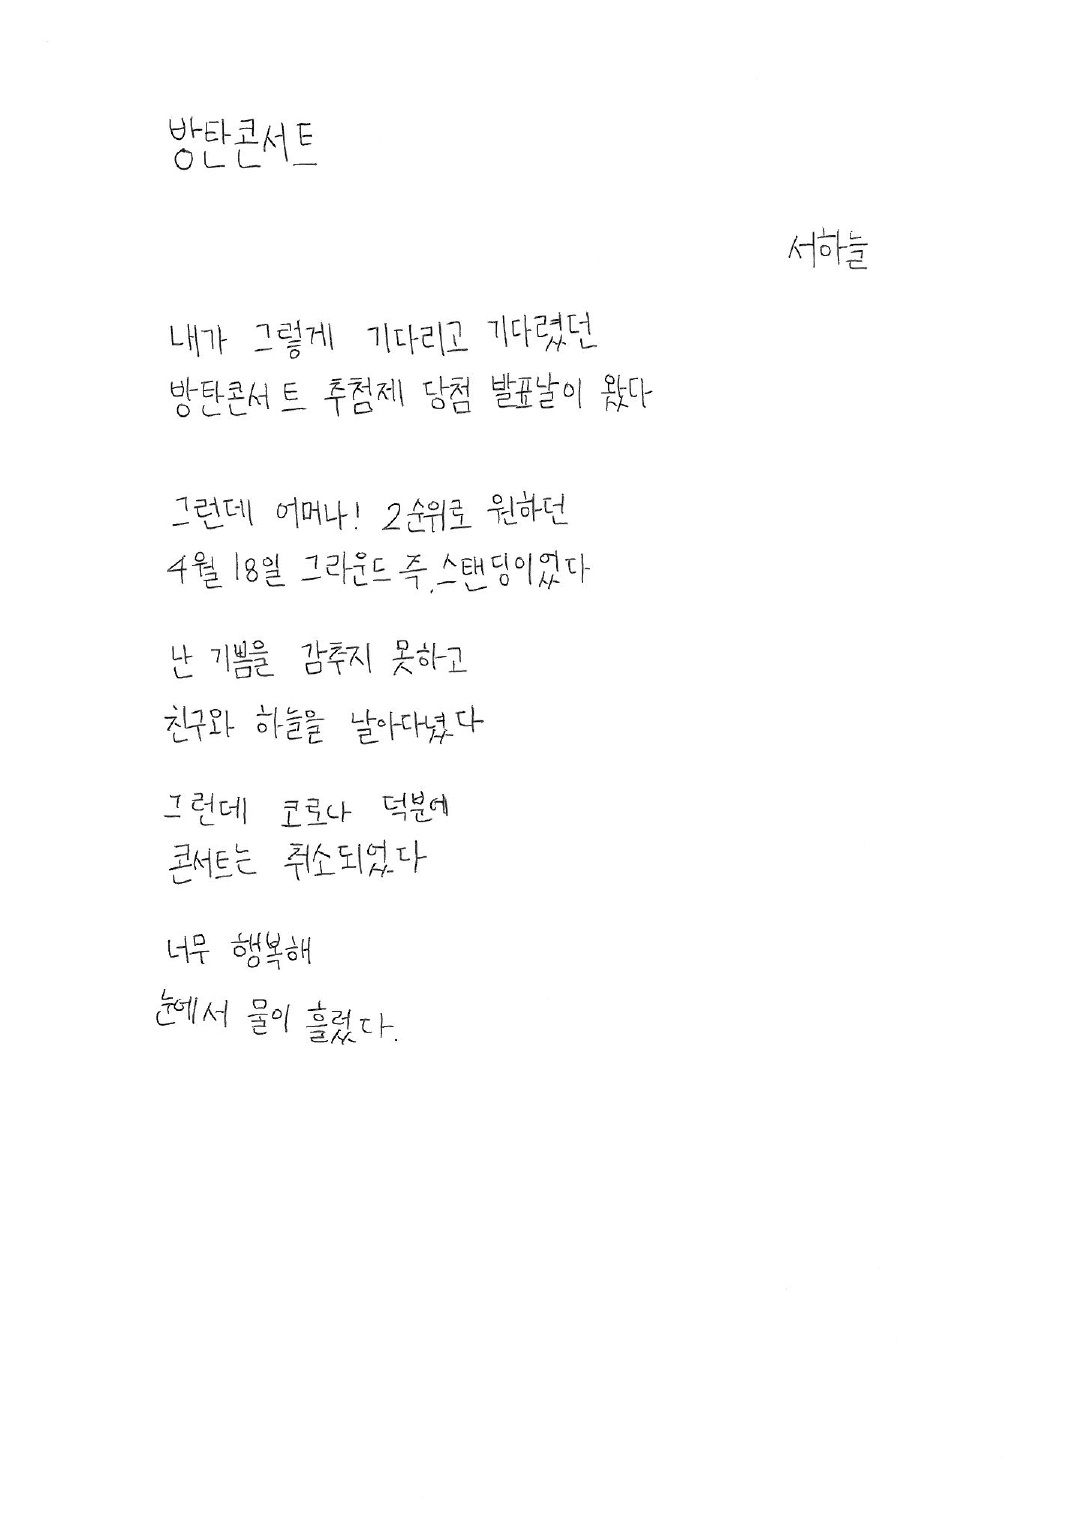 방탄콘서트
서하늘
내가 그렇게 기다리고 기다렸던
방탄콘서트 추첨제 당첨 발표날이 왔다
그런데 어머나! 2순위로 원하던
4월 18일 그라운드 즉, 스탠딩이었다
난 기쁨을 감추지 못하고
친구와 하늘을 날아다녔다
그런데 코로나 덕분에
콘서트는 취소되었다
너무 행복해
눈에서 물이 흘렀다.